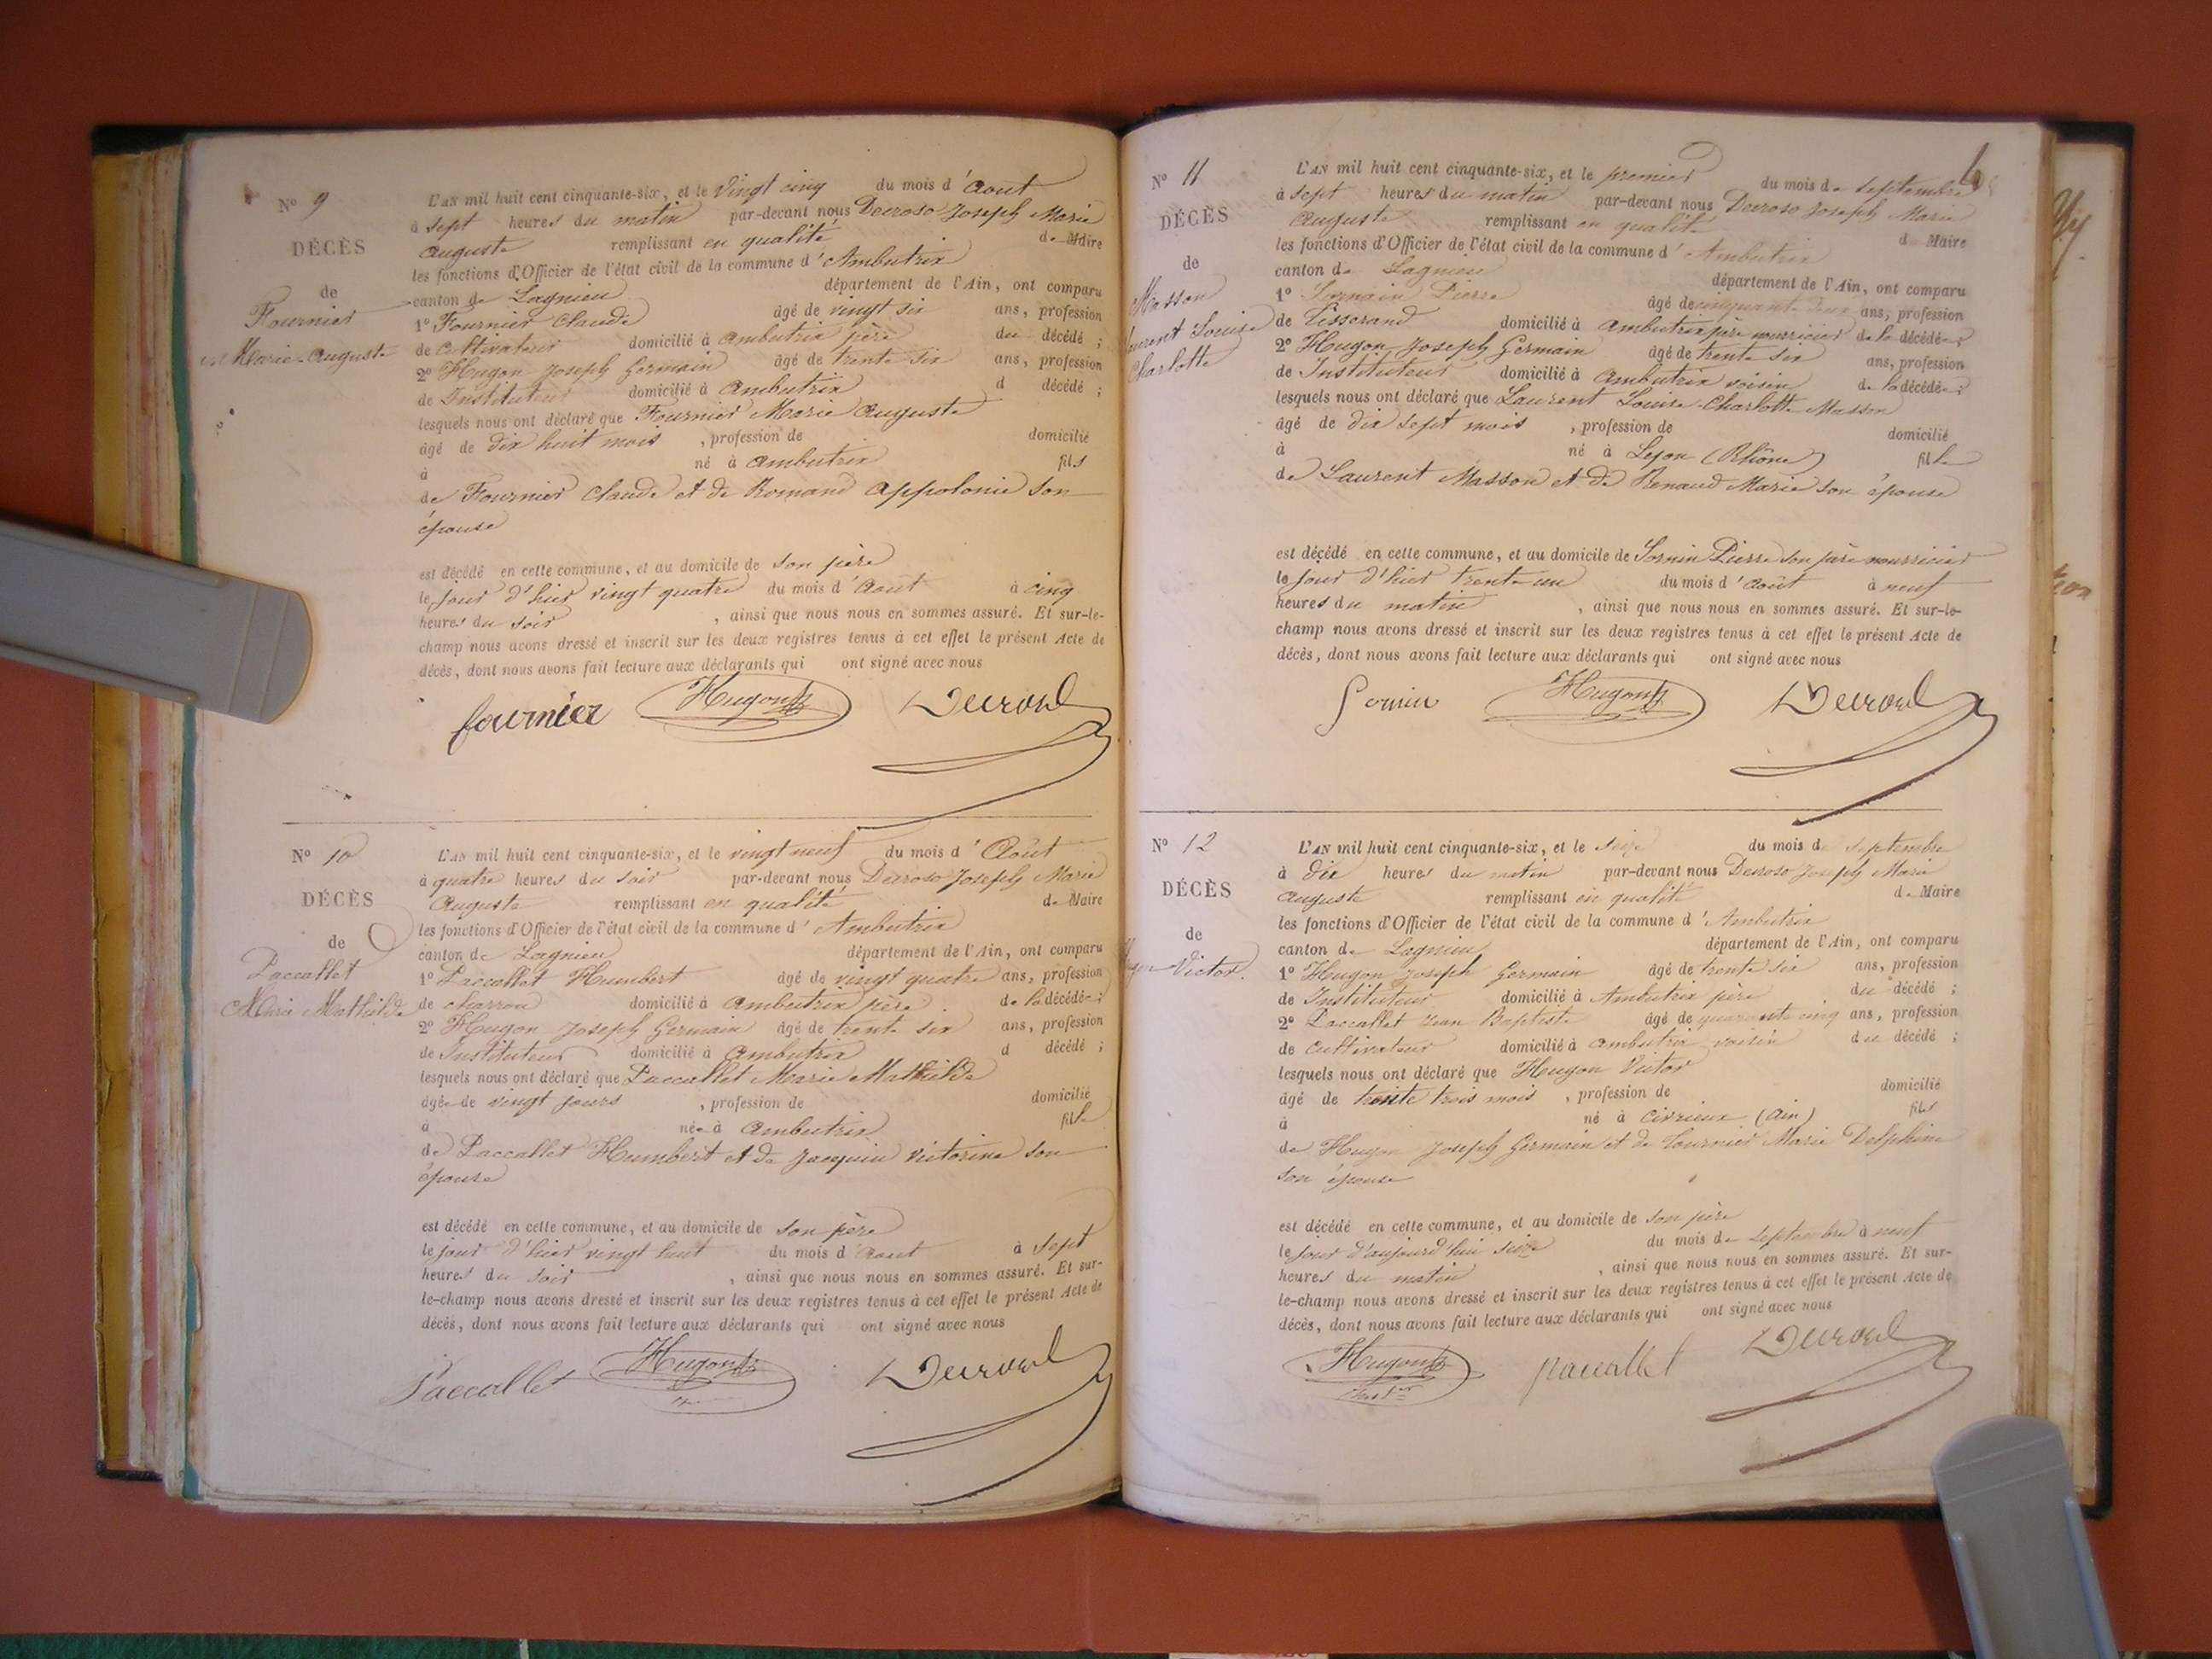 Nº 9
DÉCÈS
de
Fournier
Marie-Auguste
L'AN mil huit cent cinquante-six, et le Vingt cinq du mois d'Aout
à sept heures du matin par-devant nous Decroso Joseph Marie
Auguste remplissant en qualité de Maire
les fonctions d'Officier de l'état civil de la commune d'Ambutrix
canton de Lagnieu département de l'Ain, ont comparu
1º Fournier Claude âgé de vingt six ans, profession
de Cultivateur domicilié à Ambutrix père du décédé ;
2º Hugon Joseph Germain âgé de trente six ans, profession
de Instituteur domicilié à Ambutrix d décédé ;
lesquels nous ont déclaré que Fournier Marie Auguste
âgé de dix huit mois , profession de domicilié
à né à Ambutrix fils
de Fournier Claude et de Romand Appolonie son
épouse
est décédé en cette commune, et au domicile de son père
le jour d'hier vingt quatre du mois d'Aout à cinq
heures du soir , ainsi que nous nous en sommes assuré. Et sur-le-
champ nous avons dressé et inscrit sur les deux registres tenus à cet effet le présent Acte de
décès, dont nous avons fait lecture aux déclarants qui ont signé avec nous
fournier Hugon Decroso
Nº 10
DÉCÈS
de
Paccallet
Marie Mathilde
L'AN mil huit cent cinquante-six, et le vingt neuf du mois d'Août
à quatre heures du soir par-devant nous Decroso Joseph Marie
Auguste remplissant en qualité de Maire
les fonctions d'Officier de l'état civil de la commune d'Ambutrix
canton de Lagnieu département de l'Ain, ont comparu
1º Paccallet Humbert âgé de vingt quatre ans, profession
de charron domicilié à Ambutrix père de la décédée ;
2º Hugon Joseph Germain âgé de trente six ans, profession
de Instituteur domicilié à Ambutrix d décédé ;
lesquels nous ont déclaré que Paccallet Marie Mathilde
âgée de vingt jours , profession de domicilié
à née à Ambutrix fille
de Paccallet Humbert et de Jacquin Victorine son
épouse
est décédé en cette commune, et au domicile de son père
le jour d'hier vingt huit du mois d'aout à sept
heures du soir , ainsi que nous nous en sommes assuré. Et sur-
le-champ nous avons dressé et inscrit sur les deux registres tenus à cet effet le présent Acte de
décès, dont nous avons fait lecture aux déclarants qui ont signé avec nous
Paccallet Hugon Decroso
Nº 11
DÉCÈS
de
Masson
Laurent Louise
Charlotte
L'AN mil huit cent cinquante-six, et le premier du mois de septembre
à sept heures du matin par-devant nous Decroso Joseph Marie
Auguste remplissant en qualité de Maire
les fonctions d'Officier de l'état civil de la commune d'Ambutrix
canton de Lagnieu département de l'Ain, ont comparu
1º Sornin Pierre âgé de cinquante deux ans, profession
de Tisserand domicilié à Ambutrix père nourricier de la décédée ;
2º Hugon Joseph Germain âgé de trente six ans, profession
de Instituteur domicilié à Ambutrix voisin de la décédée ;
lesquels nous ont déclaré que Laurent Louise Charlotte Masson
âgé de dix sept mois , profession de domicilié
à né à Lyon (Rhône) fille
de Laurent Masson et de Renaud Marie son épouse
est décédé en cette commune, et au domicile de Sornin Pierre son père nourricier
le jour d'hier trente un du mois d'Août à neuf
heures du matin , ainsi que nous nous en sommes assuré. Et sur-le-
champ nous avons dressé et inscrit sur les deux registres tenus à cet effet le présent Acte de
décès, dont nous avons fait lecture aux déclarants qui ont signé avec nous
Sornin Hugon Decroso
Nº 12
DÉCÈS
de
Hugon Victor
L'AN mil huit cent cinquante-six, et le seize du mois de septembre
à dix heures du matin par-devant nous Decroso Joseph Marie
Auguste remplissant en qualité de Maire
les fonctions d'Officier de l'état civil de la commune d'Ambutrix
canton de Lagnieu département de l'Ain, ont comparu
1º Hugon Joseph Germain âgé de trente six ans, profession
de Instituteur domicilié à Ambutrix père du décédé ;
2º Paccallet Jean Baptiste âgé de quarante cinq ans, profession
de Cultivateur domicilié à Ambutrix voisin du décédé ;
lesquels nous ont déclaré que Hugon Victor
âgé de trente trois mois , profession de domicilié
à né à Civrieux (Ain) fils
de Hugon Joseph Germain et de Fournier Marie Delphine
son épouse
est décédé en cette commune, et au domicile de son père
le jour d'aujourd'hui seize du mois de septembre à neuf
heures du matin , ainsi que nous nous en sommes assuré. Et sur-
le-champ nous avons dressé et inscrit sur les deux registres tenus à cet effet le présent Acte de
décès, dont nous avons fait lecture aux déclarants qui ont signé avec nous
Hugon paccallet Decroso